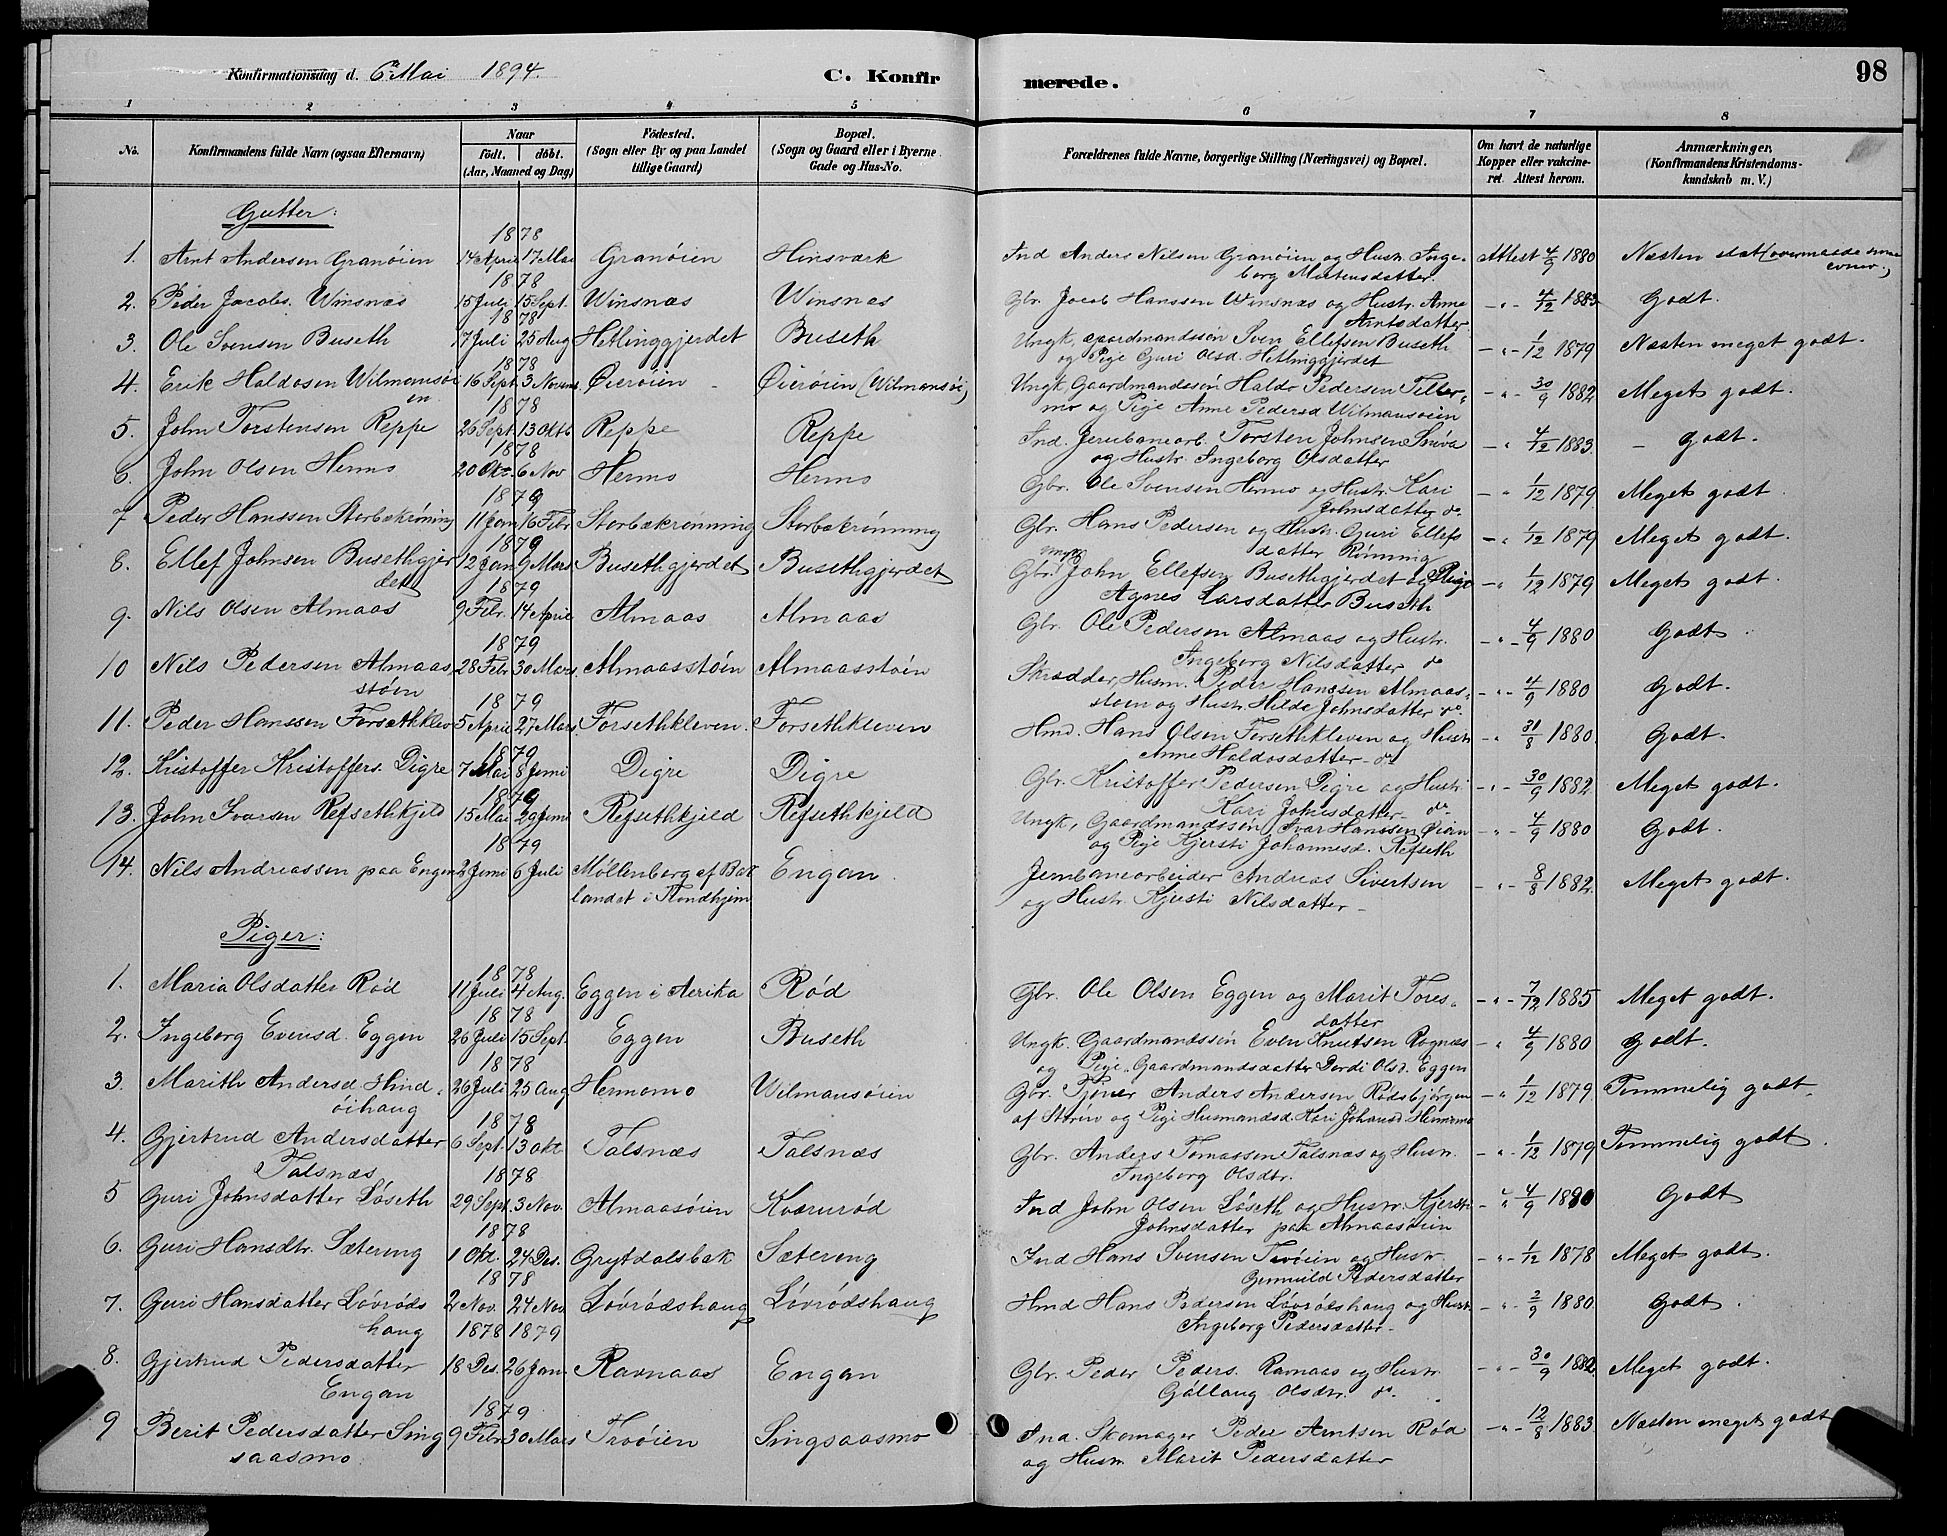 Konfirmationsdag d. 6 Mai 1894. C. Konfirmerede. 98
1 2 3 4 5 6 7 8
No. Konfirmandens fulde Navn (ogsaa Efternavn) Naar født. døbt. (Aar, Maaned og Dag) Fødested. (Sogn eller By og paa Landet tillige Gaard) Bopæl. (Sogn og Gaard eller i Byerne Gade og Hus-No. Forældrenes fulde Navne, borgerlige Stilling (Næringsvei) og Bopæl. Om havt de naturlige Kopper eller vakcineret. Attest herom. Anmærkninger, (Konfirmandens Kristendomskundskab m. V.)
Gutter:
1878
1. Arnt Andersen Granöien 14 April 17 Mai Granöien Hinsværk Ind Anders Nilsen Granöien og Hustr. Inge- Attest 4/9 1880 Næsten
borg Mortensdatter
1878
2. Peder Jacobs. Winsnæs 15 Juli 15 Sept. Winsnæs Winsnæs Gbr. Jacob Hanssen Winsnæs og Hustr. Anne - " - 4/12 1883 Godt.
Arntsdatter
1878
3. Ole Svensen Buseth 17 Juli 25 Aug Hetlinggjerdet Buseth Ungk, gaardmandssön Sven Ellefsen Buseth - " - 1/12 1879 Næsten meget godt.
og Pige Guri Olsd. Hetlinggjerdet
1878
4. Erik Haldosen Wilmansöi 16 Sept. 3 Novem. Øieröien - Øieröien (Wilmansöi) Ungk Gaardmandssön Haldo Pedersen Tiller- - " - 30/9 1882 Meget godt.
en mo og Pige Anne Pedersd Wilmansöien
1878
5. John Torstensen Reppe 26 Sept. 13 Oktb Reppe Reppe Ind. Jernbanearb. Torsten Johnsen - " - 4/12 1883. - Godt.
og Hustr. Ingeborg Olsdatter
1878
6. John Olsen Hermo 20 Okt. 6 Nov Hermo Hermo Gbr. Ole Svensen Hermo og Hustr. Kari - " 1/12 1879. Meget godt.
Johnsdatter do.
1879
7 Peder Hanssen Storbækröning 11 Jan 16 Febr Storbækrönning Storbækrönning Gbr. Hans Pedersen og Hustr. Guri Ellefs - " 1/12 1879 Meget godt.
datter Rönning
1879
8. Ellef Johnsen Busethgjer 12 Jan 9 Mars Busethgjerdet Busethgjerdet Gbr. John Ellefsen Busethgjerdet og Pige - " 1/12 1879 Meget godt.
det Agnes Larsdatter Buseth
1879
9. Nils Olsen Almaas 9 Febr. 14 April Almaas Almaas Gbr. Ole Pedersen Almaas og Hustr. - " - 4/9 1880 Godt
Ingeborg Nilsdatter do
1879
10 Nils Pedersen Almaas 28 Febr. 30 Mars. Almaasstöen Almaasstöen Skrædder, Husm. Peder Hanssen Almaas- - " - 4/9 1880 Godt.
stöen stöen og Hustr. Hilde Johnsdatter do.
1879
11. Peder Hanssen Forsethklev 5 April 27 Mars. Forsethkleven. Forsethkleven Hmd. Hans Olsen Forsethkleven og Hustr - " 31/8 1880. Godt.
Anne Haldosdatter - do
1879
12. Kristoffer Kristoffers. Digre 7 Mai 8 Juni Digre Digre Gbr. Kristoffer Pedersen Digre og Hustr. - " - 30/9 1882. Meget godt.
Kari Johnsdatter - do
1879
13. John Ivarsen Refsethkjeld 15 Mai 29 Juni Refsethkjeld Refsethkjeld Ungk, Gaardmandssön Ivar Hanssen Øien - " - 4/9 1880 Godt.
og Pige Kjersti Johannesd. Refseth
1879
14. Nils Andreassen paa Engen 2 Juni 6 Juli Möllenborg af Bak Engan. Jernbanearbeider Andreas Sivertsen - " - 8/8 1882. Meget godt.
landet i Trondhjem og Hustr. Kjersti Nilsdatter -
Piger:
1878
1. Maria Olsdatter Röd 11 Juli 4 Aug. Eggen i Aerika Röd Gbr. Ole Olsen Eggen og Marit Tores- - " - 7/12 1885 Meget godt.
datter
1878
2. Ingeborg Evensd. Eggen 26 Juli 15 Sept. Eggen Buseth Ungk. Gaardmandssön Even Knutsen Rognæs - " 4/9 1880 Godt.
og Pige. Gaardmandsdatter Dordi Olsd. Eggen
1878
3. Marith Andersd. Hind- 26 Juli 25 Aug Hermomo Wilmansöien Gbr. Tjener Anders Andersen Rödsbjörgen - " 1/12 1879 Temmelig godt.
öihaug af Stören og Pige Husmandsd. Kari Johansd. Hermomo
1878
4. Gjertrud Andersdatter 6 Sept. 13 Okt Talsnæs Talsnæs Gbr. Anders Tomassen Talsnæs og Hustr. - " - 1/12 1879 Temmelig godt.
Talsnæs Ingeborg Olsdtr.
1878
5 Guri Johnsdatter Löseth 29 Sept. 3 Nov. Almaasöien Kværnröd Ind John Olsen Löseth og Hustr. Kjersti " 4/9 1880 Godt
Johnsdatter paa Almaasöien
1878
6. Guri Hansdtr. Sætereng 1 Okt. 24 Des. Grytdalsbak Sætereng Ind Hans Svensen Trööien og Hustr. - " - 1/12 1878 Meget godt.
Gunnild Pedersdatter
1878
7. Guri Hansdatter Lövröds 2 Nov. 24 Nov Lövrödshaug Lövrödshaug Hmd Hans Pedersen Lövrödshaug og Hustr - " - 2/9 1880. Godt.
haug Ingeborg Pedersdatter -
1878 1879
8. Gjertrud Pedersdatter 18 Des. 26 Jan. Ravnaas Engan Gbr. Peder Peders. Ravnaas og Hustr. - " - 30/9 1882. Meget godt.
Engan Göllaug Olsdtr. do.
1879
9 Berit Pedersdatter Sing 9 Febr. 30 Mars Trööien Singsaasmo Ind. Skomager Peder Arntsen Röd - " - 12/8 1883. Næsten meget godt
saasmo. og Hustr Marit Pedersdatter